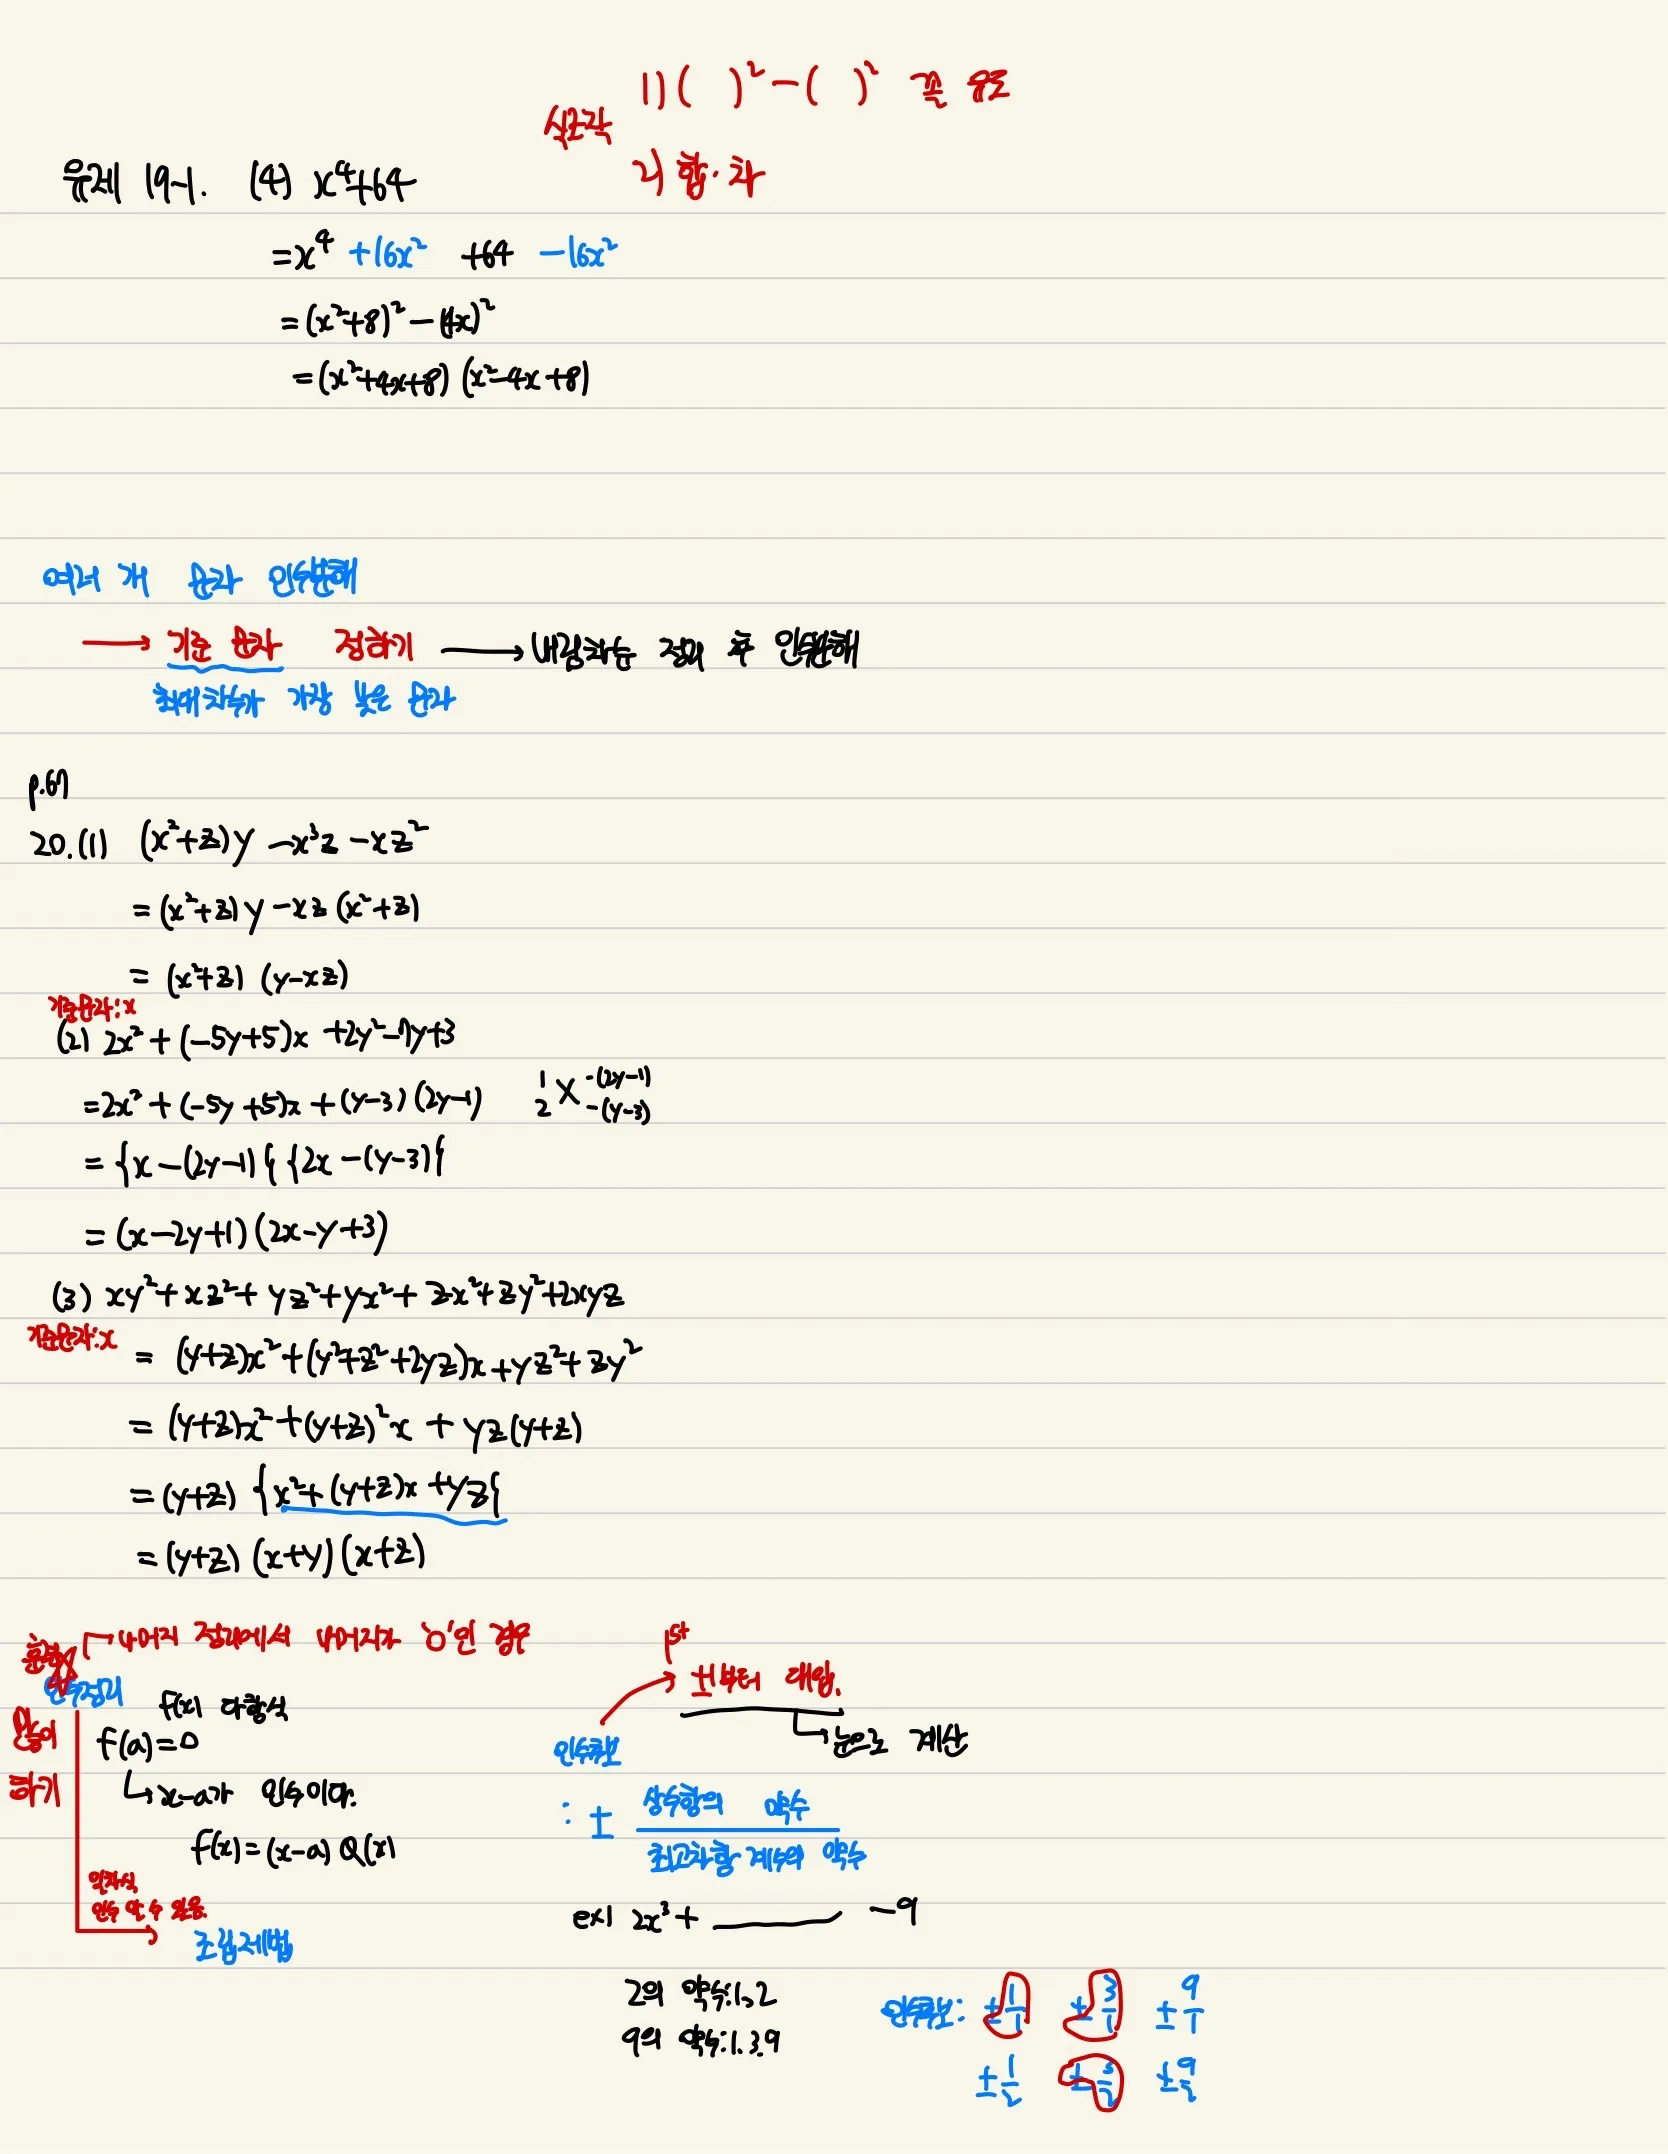 1) ( )² - ( )² 꼴 유도
식조작
2) 합·차
유제 19-1. (4) x⁴+64
= x⁴ +16x² +64 -16x²
= (x²+8)² - (4x)²
= (x²+4x+8) (x²-4x+8)
여러 개 문자 인수분해
→ 기준 문자 정하기 → 내림차순 정리 후 인수분해
최대차수가 가장 낮은 문자
p.67
20. (1) (x²+z)y - x³z - xz²
= (x²+z)y - xz(x²+z)
= (x²+z) (y-xz)
기준문자:x
(2) 2x² + (-5y+5)x + 2y²-7y+3
= 2x² + (-5y+5)x + (y-3)(2y-1) 1 -(2y-1)
2 × -(y-3)
= {x-(2y-1)} {2x-(y-3)}
= (x-2y+1)(2x-y+3)
(3) xy²+xz²+yz²+yx²+zx²+zy²+2xyz
기준문자:x
= (y+z)x²+(y²+z²+2yz)x+yz²+zy²
= (y+z)x²+(y+z)²x + yz(y+z)
= (y+z) {x²+(y+z)x+yz}
= (y+z) (x+y)(x+z)
나머지 정리에서 나머지가 '0'인 경우
인수정리
f(x) 다항식
많이
하기
f(a)=0
↳ x-a가 인수이다.
f(x)=(x-a)Q(x)
일차식
인수 알 수 있음.
조립제법
1st
±1부터 대입.
↳ 눈으로 계산
인수후보
: ± 상수항의 약수
최고차항 계수의 약수
ex) 2x³+ ______ -9
2의 약수:1,2
9의 약수:1.3.9
인수후보: ±1/1 ±3/1 ±9/1
±1/2 ±3/2 ±9/2